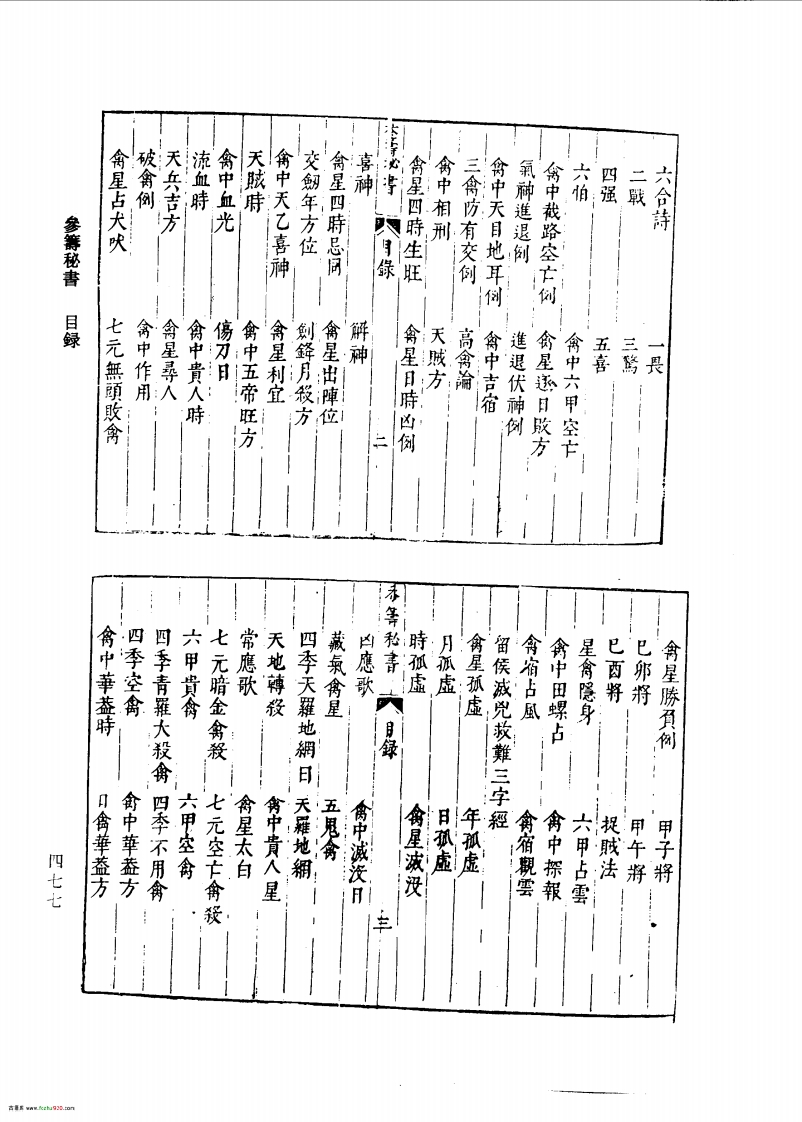 六合詩　一畏
二戰　三驚
四强　五喜
六怕
禽中截路空亡例　禽中六甲空亡
氣神進退例　禽星逐日敗方
禽中天目地耳例　進退伏神例
三禽防有交例　禽中吉宿
禽中相刑　高禽論
禽星四時生旺　天賊方
禽星日時凶例
參籌秘書　目錄　二
喜神　解神
禽星四時忌同　禽星出陣位
交劔年方位　劍鋒月殺方
禽中天乙喜神　禽星利宜
天賊時　禽中五帝旺方
禽中血光　傷刀日
流血時　禽中貴人時
天兵吉方　禽星尋人
破禽例　禽中作用
禽星占犬吠　七元無頭敗禽
參籌秘書　目録
禽星勝負例　甲子將
己卯將　甲午將
己酉將　捉賊法
星禽隱身　六甲占雲
禽中田螺占　禽中探報
禽宿占風　禽宿觀雲
留侯滅兇救難三字經
禽星孤虛　年孤虛
月孤虛　日孤虛
時孤虛　禽星滅没
參籌秘書　目錄　三
凶應歌　禽中滅没日
藏氣禽星　五鬼禽
四季天羅地網日　天羅地網
天地轉殺　禽中貴人星
常應歌　禽星太白
七元暗金禽殺　七元空亡禽殺
六甲貴禽　六甲空禽
四季青羅大殺禽　四季不用禽
四季空禽　禽中華葢方
禽中華葢時　日禽華葢方
四七七
古易库 www.fozhu920.com